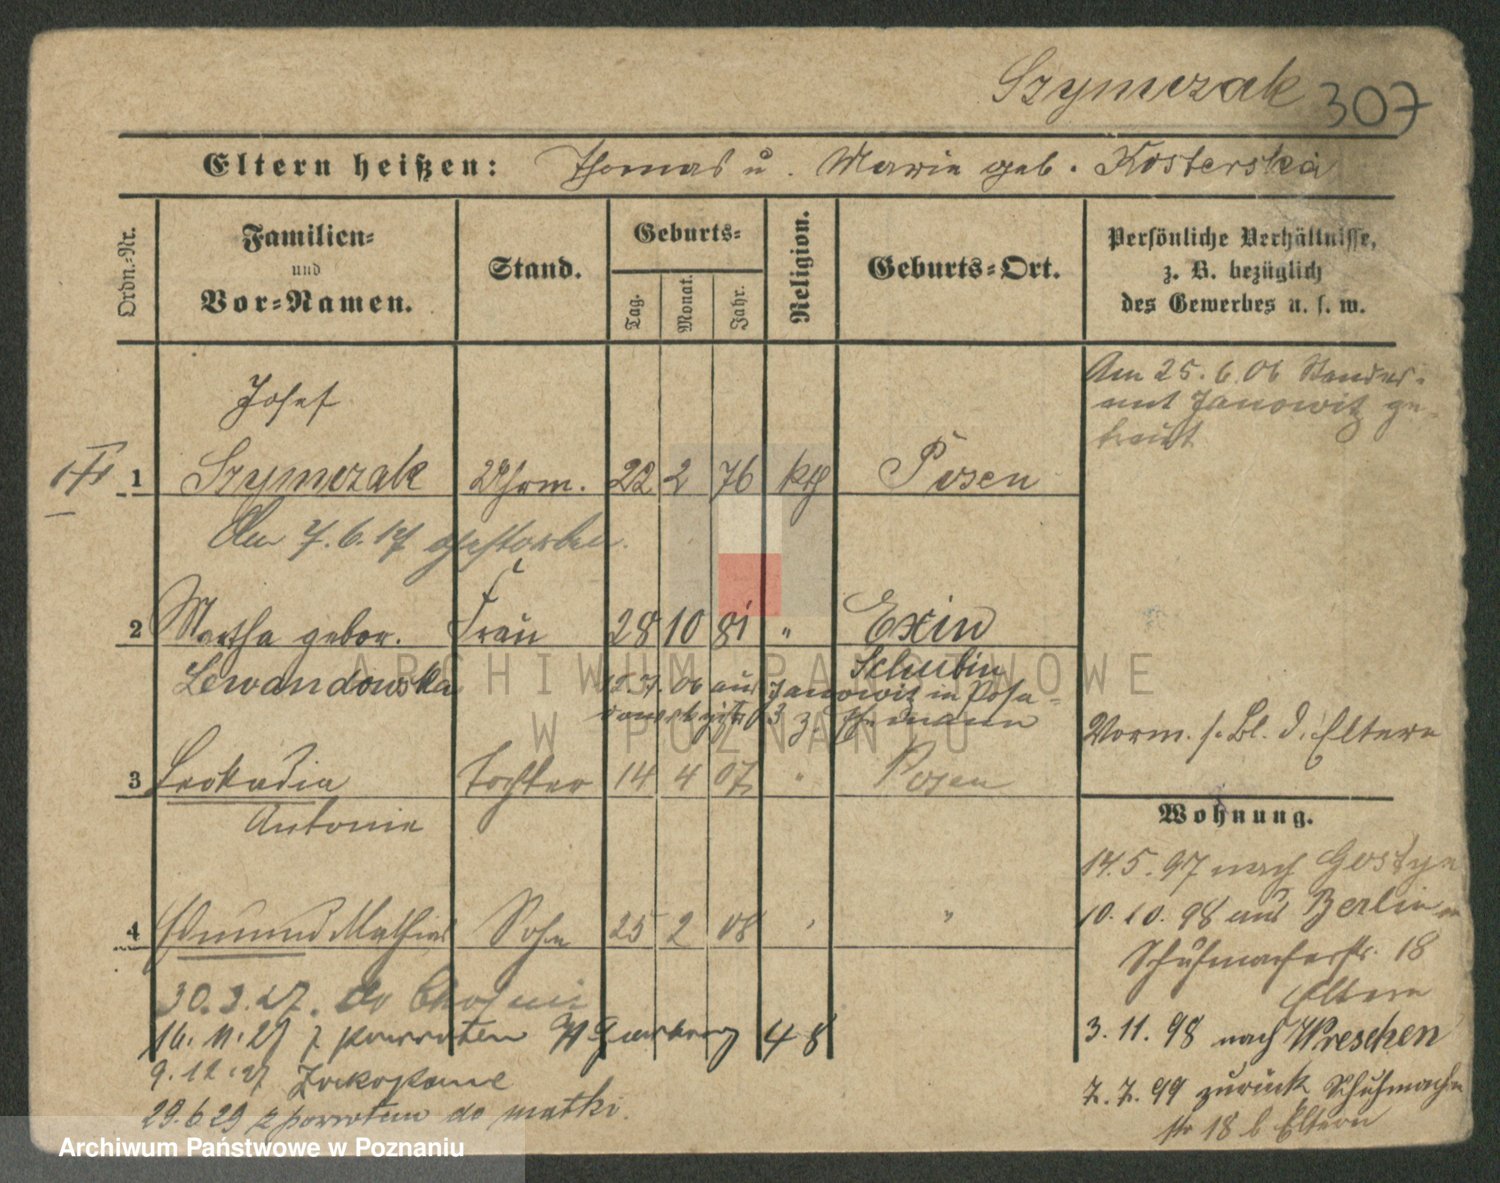 Szymczak 307
Eltern heißen: Thomas u. Marie geb. Kosterska
Ordn.-Nr.
Familien- und Vor-Namen.
Stand.
Geburts-
Tag.
Monat.
Jahr.
Religion.
Geburts-Ort.
Persönliche Verhältnisse,
z. B. bezüglich
des Gewerbes u. s. w.
Am 25.6.06 Standes-
amt Janowitz ge-
traut
Josef
1 Szymczak Uhrm. 22 2 76 kth Posen
Am 7.6.17 gestorben.
2 Martha gebor. Frau 28 10 81 " Exin
Lewandowska Schubin
06 aus Janowitz in Posa-
Vorm. s. Bl. d. Eltern
3 Leokadia Tochter 14 4 07 " Posen
Antonie
Wohnung.
14.5.97 nach Gostyn
4 Edmund Mathias Sohn 25 2 08 " "
10.10.98 aus Berlin
Schuhmacherstr. 18
Eltern
3.11.98 nach Wreschen
7.7.99 zurück Schuhmacher
str 18 b Eltern
30.3.27. do
16.11.27 z powrotem 48
9.12.27 Zakopane
29.6.29 z powrotem do matki.
ARCHIWUM PAŃSTWOWE
W POZNANIU
Archiwum Państwowe w Poznaniu